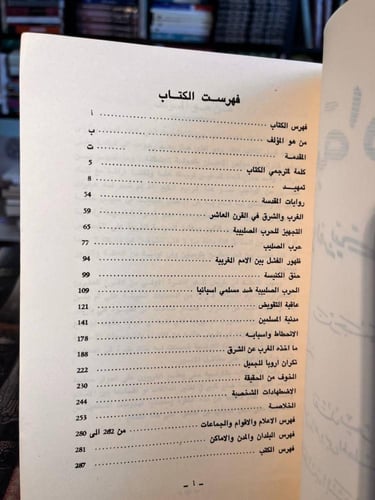 فهرست الكتاب
فهرس الكتاب أ
من هو المؤلف ب
المقدمة ت
كلمة لمترجمي الكتاب 5
تمهيد 8
روايات المقدسة 54
الغرب والشرق في القرن العاشر 59
التجهيز للحرب الصليبية 65
حرب الصليب 77
ظهور الفشل بين الامم الغربية 94
حنق الكنيسة 99
الحرب الصليبية ضد مسلمي اسبانيا 109
عاقبة التقويض 121
مدنية المسلمين 141
الانحطاط واسبابه 178
ما اخذه الغرب عن الشرق 188
نكران اروبا للجميل 222
الخوف من الحقيقة 230
الاضطهادات الشخصية 244
الخلاصة 253
فهرس الاعلام والاقوام والجماعات من 262 الى 280
فهرس البلدان والمدن والاماكن 281
فهرس الكتب 287
- أ -